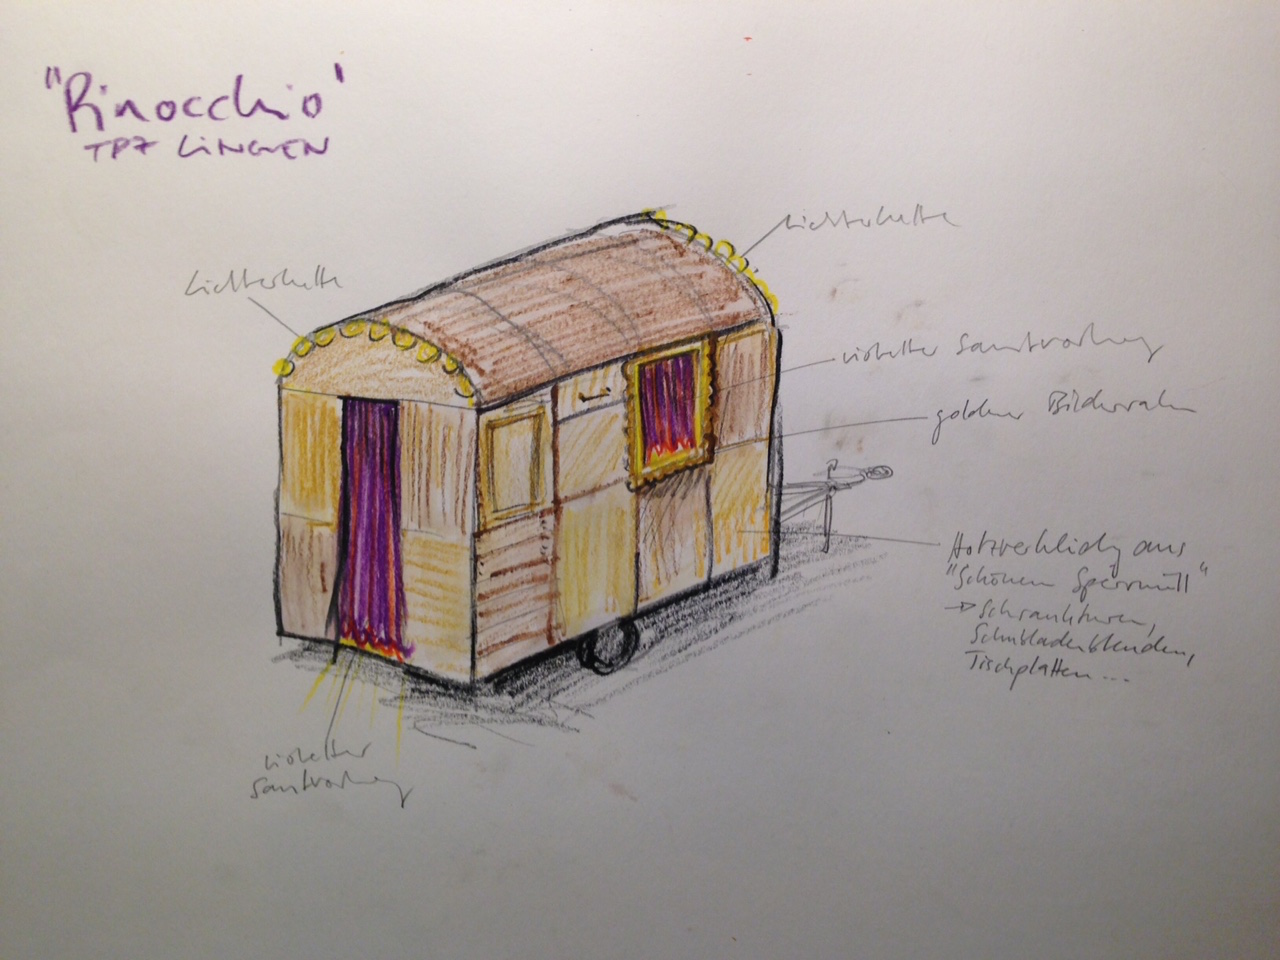 "Pinocchio"
TPZ LINGEN
Lichterkette
Lichterkette
violetter Samtvorhang
goldener Bilderrahmen
Holzverkleidung aus
"Schönem Sperrmüll"
→ Schranktüren,
Schubladenblenden,
Tischplatten...
violetter
Samtvorhang